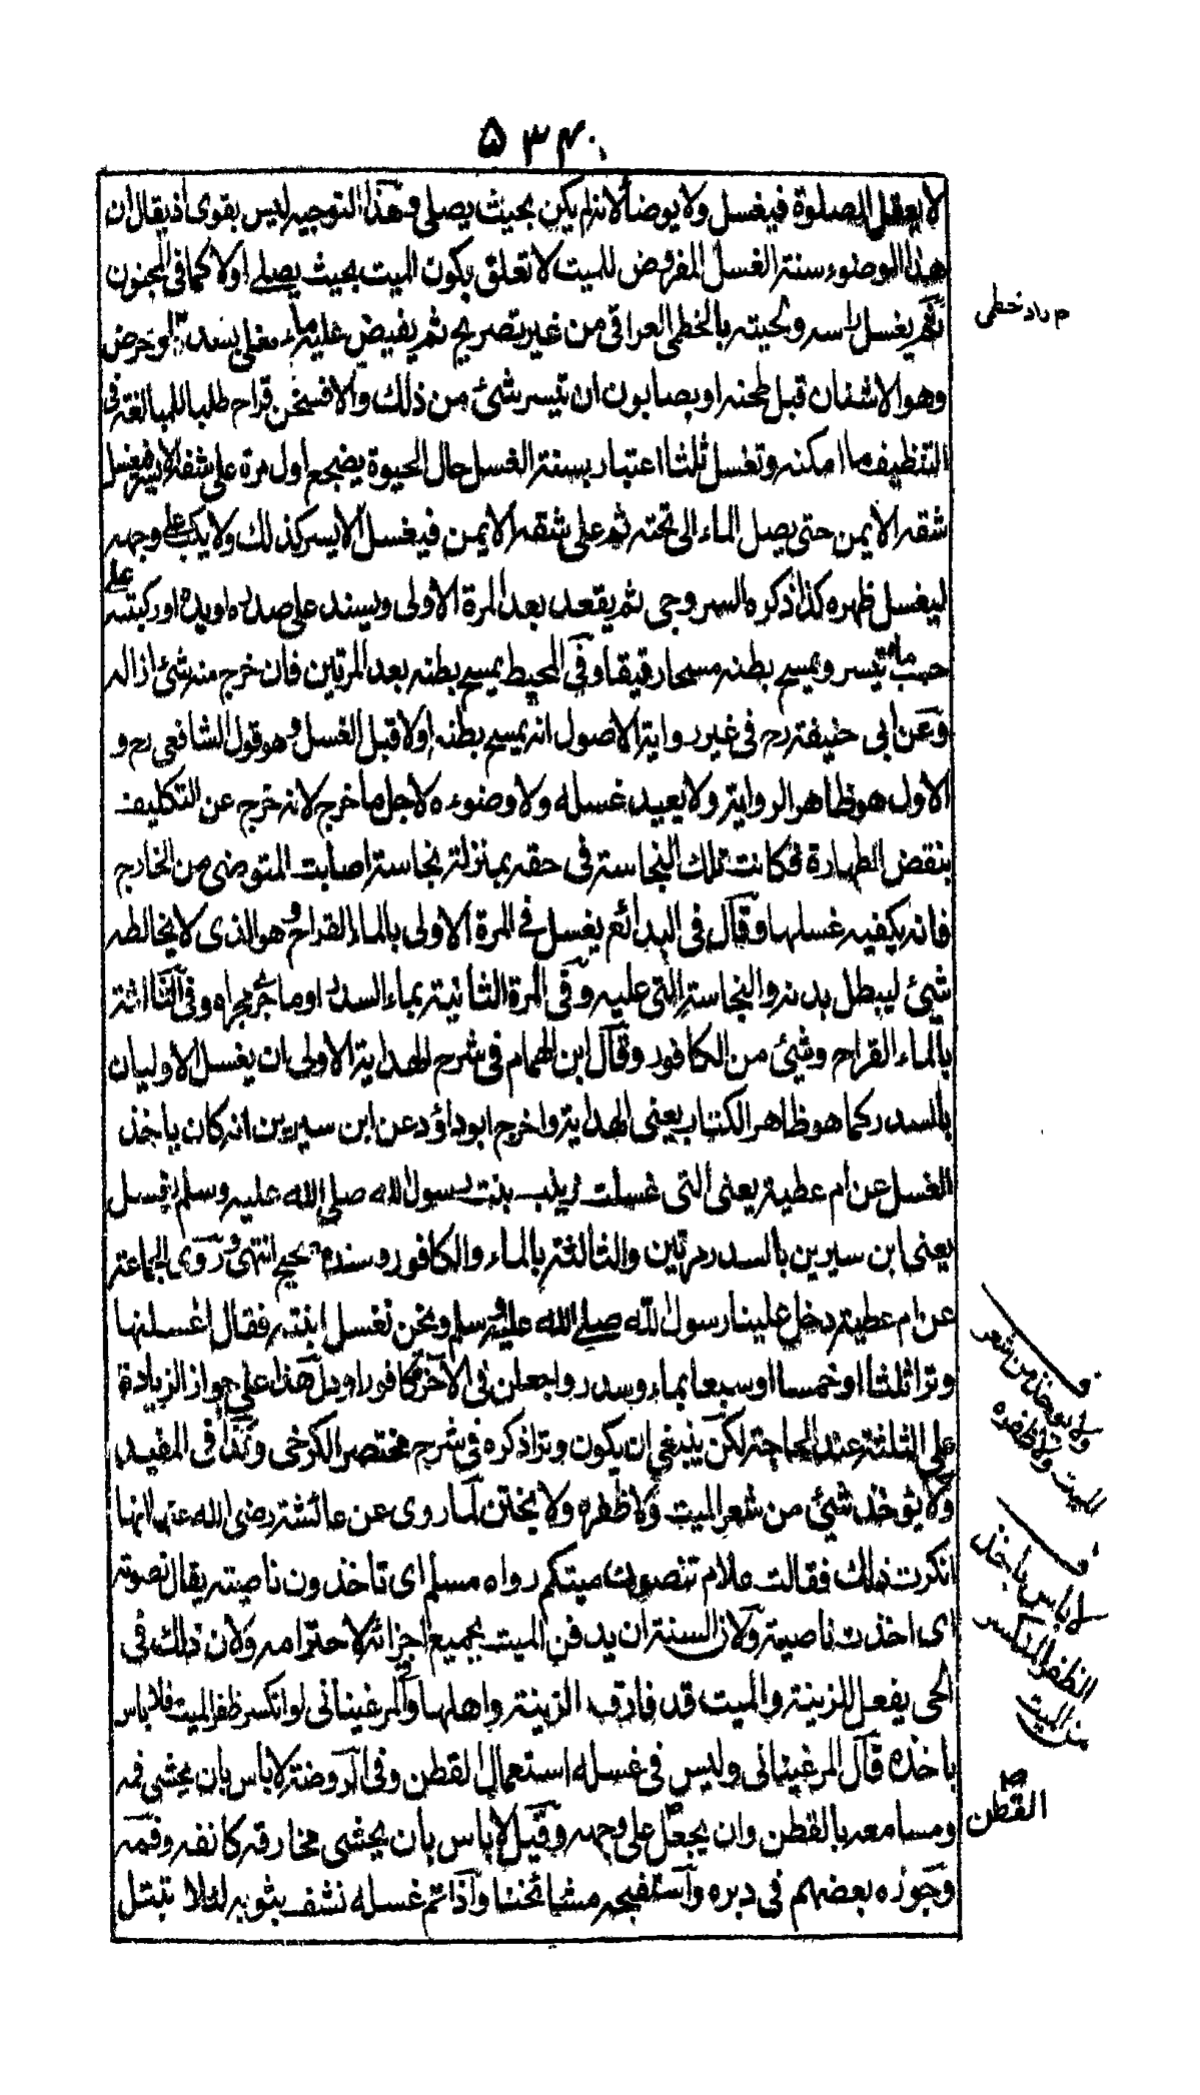 ۵۳۴
لا يعقل الصلوة فيغسل ولا يوضأ لانه لم يكن بحيث يصلى وهذا التوجيه ليس بقوى اذ يقال ان
هذا الوضوء سنة الغسل المفروض للميت لا تعلق بكون الميت بحيث يصلے اولا كما فى المجنون
ثم يغسل راسه ولحيته بالخطمى العراقى من غير تصريح ثم يفيض عليه ماء مغلى بسدر او حرض
وهو الاشنان قبل طحنه او بصابون ان تيسر شئ من ذلك والا فسخن قراح طلبا للمبالغة فى
التنظيف ما امكنه وتغسل ثلثا اعتبار بسنة الغسل حال الحيوة يضجع اول مرة على شقه الايسر فيغسل
شقه الايمن حتى يصل الماء الى تحته ثم على شقه الايمن فيغسل الايسر كذلك ولا يكب على وجهه
ليغسل ظهره كذا ذكره السروجى ثم يقعد بعد المرة الاولى ويسند على صدره او يده او ركبته علے
حسب ما تيسر ويمسح بطنه مسحا رقيقا وفى المحيط يمسح بطنه بعد المرتين فان خرج منه شئ ازاله
وعن ابى حنيفة رح فى غير رواية الاصول انه يمسح بطنه اولا قبل الغسل وهو قول الشافعى رح و
الاول هو ظاهر الرواية ولا يعيد غسله ولا وضوءه لاجل ما خرج لانه خرج عن التكليف
بنقض الطهارة فكانت تلك النجاسة فى حقه بمنزلة نجاسة اصابت المتوضى من الخارج
فانه يكفيه غسلها وقال فى البدائع يغسل فى المرة الاولى بالماء القراح وهو الذى لا يخالطه
شئ ليبطل بدنه والنجاسة التى عليه وفى المرة الثانية بماء السدر او ما جرى مجراه وفى الثالثة
بالماء القراح وشئ من الكافور وقال ابن الهمام فى شرح الهداية الاولى ان يغسل الاوليان
بالسدر كما هو ظاهر الكتاب يعنى الهداية واخرج ابو داؤد عن ابن سيرين انه كان ياخذ
الغسل عن ام عطية يعنى التى غسلت زينب بنت رسول الله صلى الله عليه وسلم يغسل
يعنى ابن سيرين بالسدر مرتين والثالثة بالماء والكافور وسنده صحيح انتهى وروى الجماعة
عن ام عطية دخل علينا رسول الله صلے الله عليه وسلم ونحن نغسل ابنته فقال اغسلنها
وترا ثلثا او خمسا او سبعا بماء وسدر واجعلن فى الآخرة كافورا ودل هذا على جواز الزيادة
على الثلثة عند الحاجة لكن ينبغى ان يكون وترا ذكره فى شرح مختصر الكرخى وكذا فى المفيد
ولا يؤخذ شئ من شعر الميت ولا ظفره ولا يختن لما روى عن عائشة رضى الله عنها انها
انكرت ذلك فقالت علام تنصون ميتكم رواه مسلم اى تاخذون ناصيته يقال نصوته
اى اخذت ناصيته ولان السنة ان يدفن الميت بجميع اجزائه لاحترامه ولان ذلك فى
الحى يفعل للزينة والميت قد فارق الزينة واهلها والمرغينانى لو انكسر ظفر الميت فلا باس
باخذه قال المرغينانى وليس فى غسله استعمال القطن وفى الروضة لا باس بان يحشى فمه
ومسامعه بالقطن وان يجعل على وجهه وقيل لا باس بان يحشى مخارقه كانفه وفمه
وجوزه بعضهم فى دبره واستقبحه مشائخنا واذا تم غسله نشف بثوب لئلا تبتل
لا يوخذ من شعر
الميت ولا ظفره
لا باس باخذ
الظفر المنكسر
من الميت
القطن